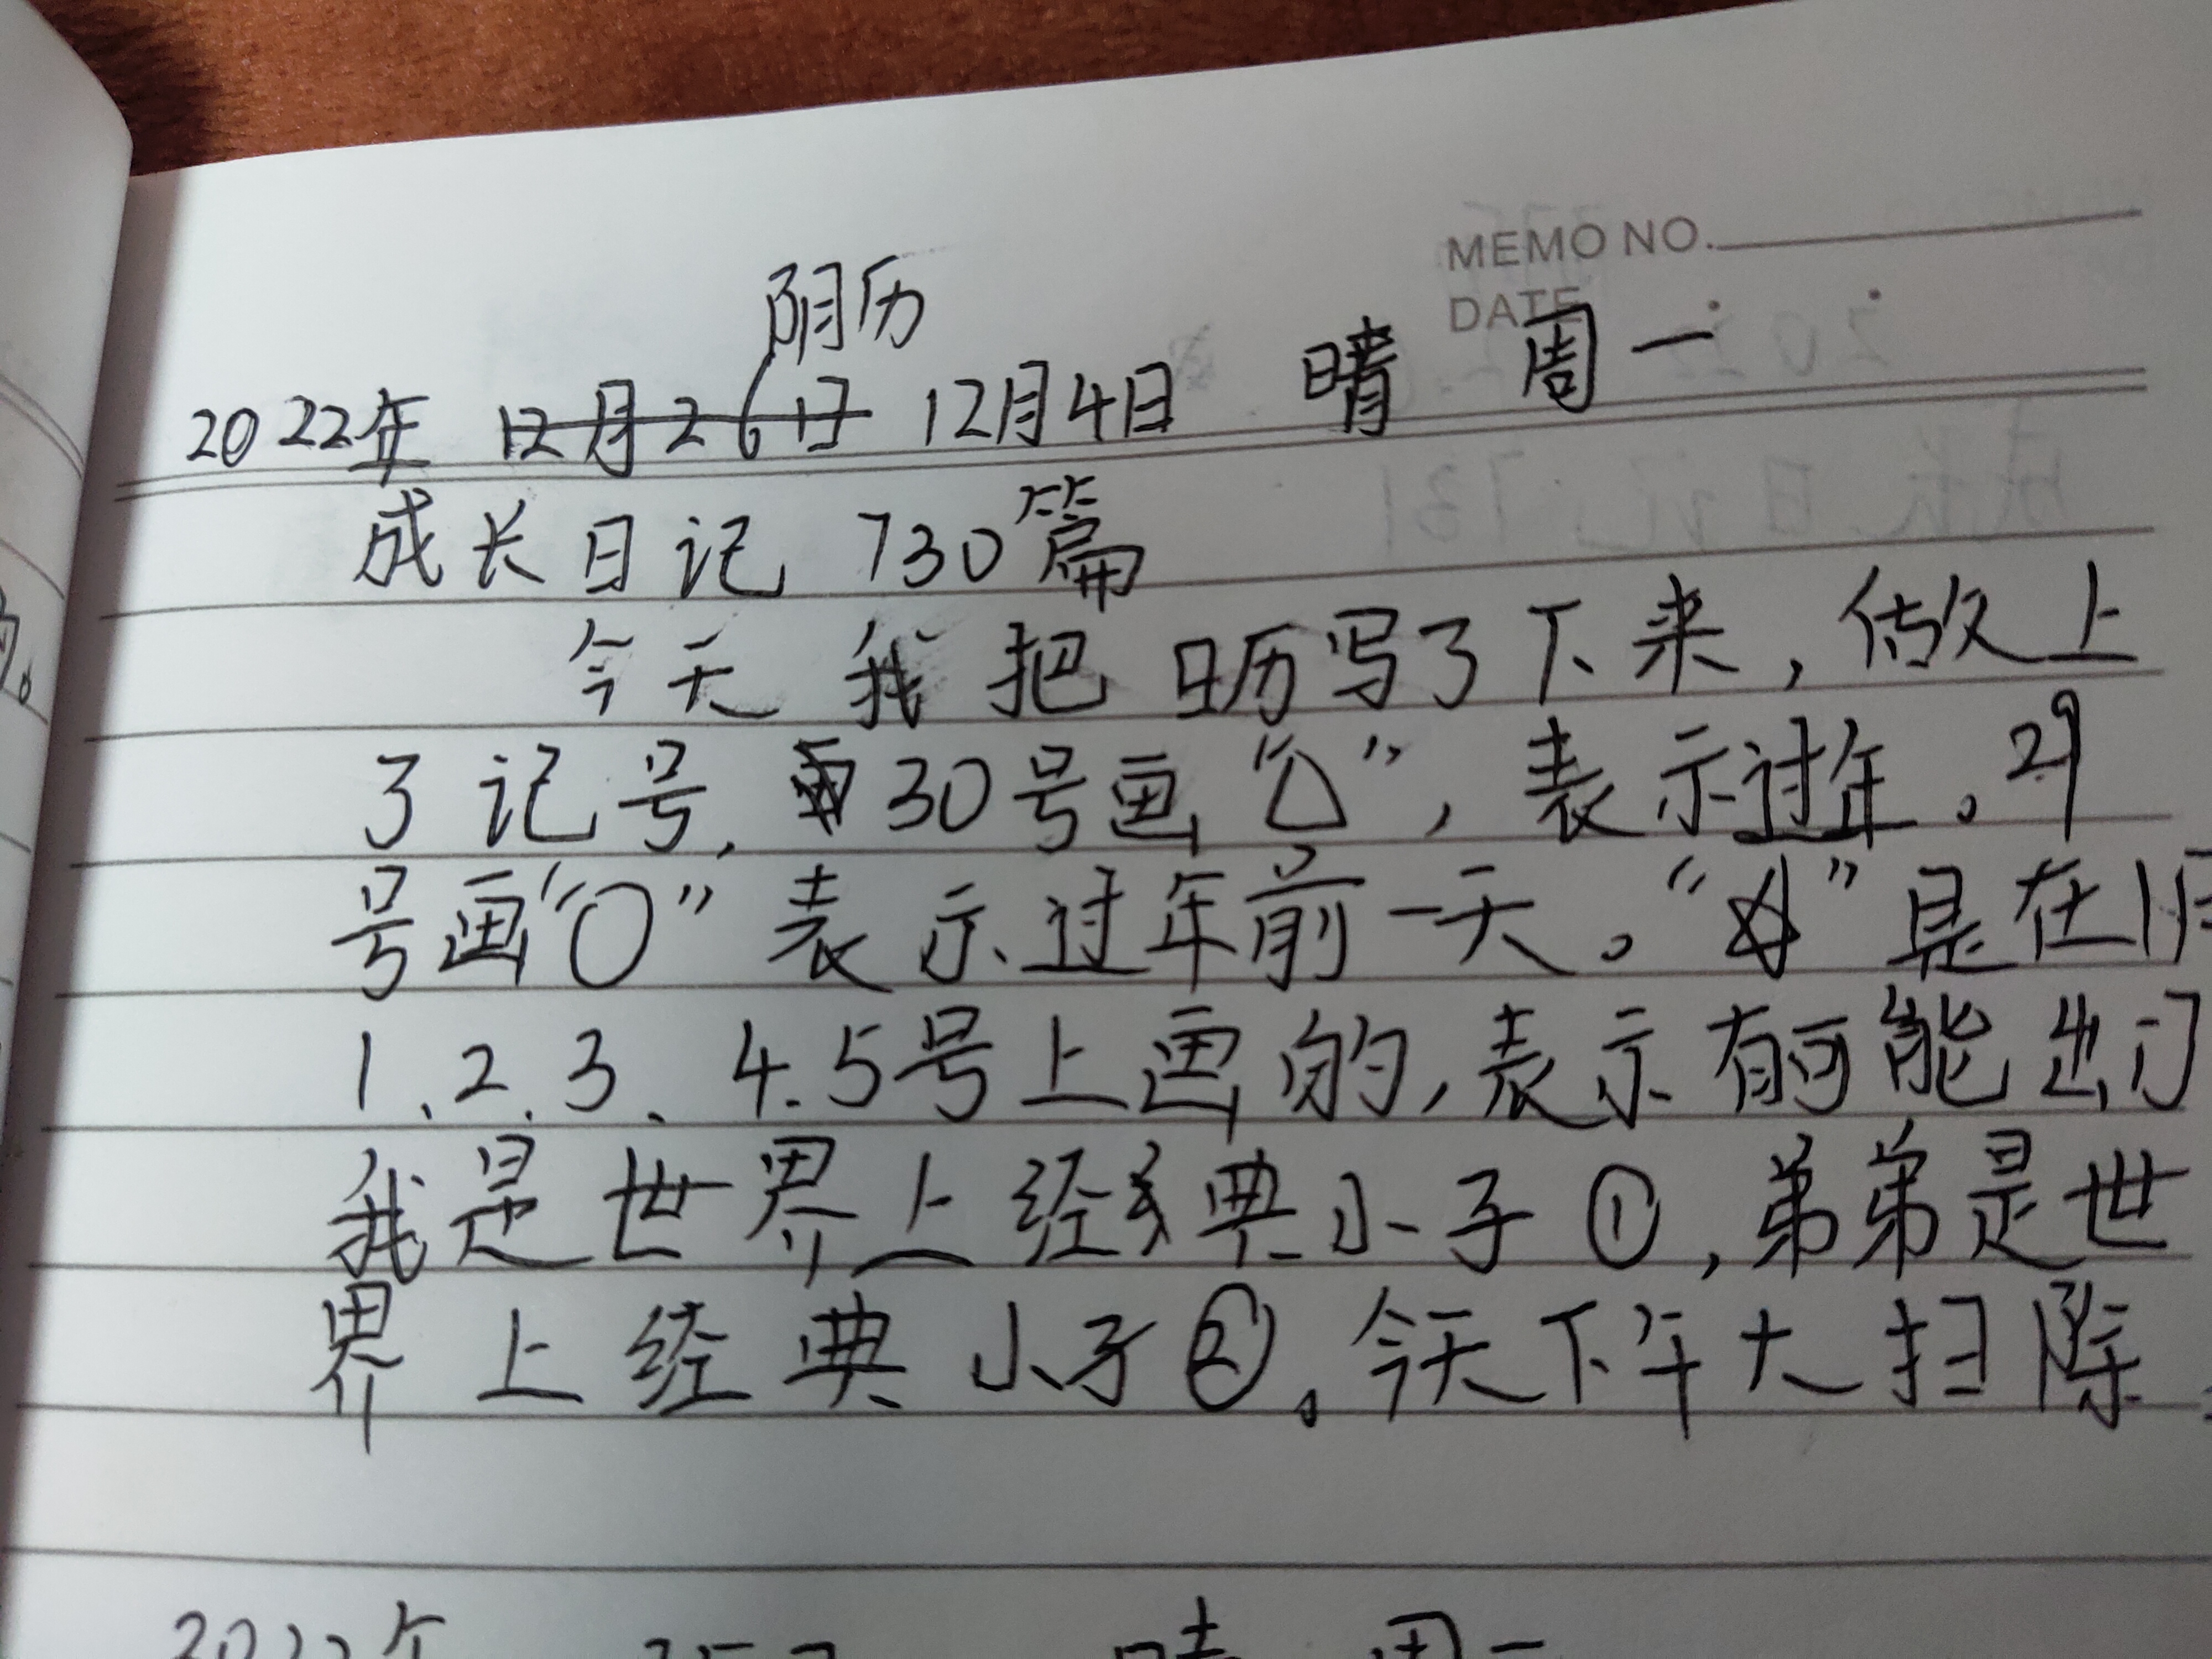 MEMO NO.
DATE
阴历
2022年 12月26日 12月4日 晴 周一
成长日记 730篇
今天我把日历写了下来，做上
了记号，30号画“△”，表示过年。29
号画“○”表示过年前一天。“☆”是在1月
1、2、3、4、5号上画的，表示有可能出门
我是世界上经典小子①，弟弟是世
界上经典小子②。今天下午大扫除
2022年 晴 周